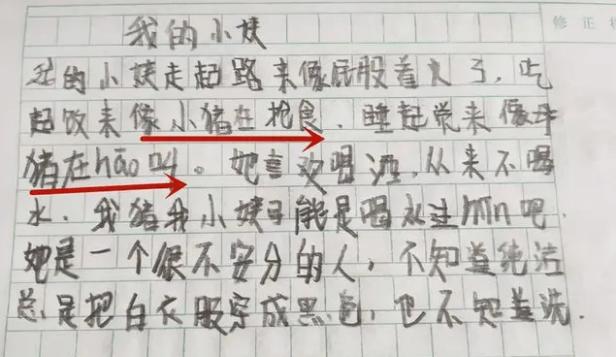 修正
我的小姨
我的小姨走起路来像屁股着火了,吃
起饭来像小猪在抢食.睡起觉来像母
猪在hāo叫。她喜欢喝酒,从来不喝
水.我猪我小姨可能是喝水过mǐn吧.
她是一个很不安分的人,不知道纯洁
总是把白衣服穿成黑色,也不知道洗.